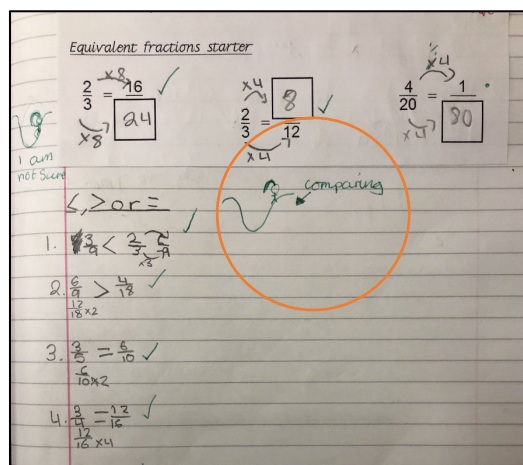 Equivalent fractions starter
×8
2/3 = 16/24
×8
×4
2/3 = 8/12
×4
×4
4/20 = 1/80
×4
I am
not sure
comparing
<, > or =
1. 3/9 < 2/3
×3
2. 6/9 > 4/18
12/18 ×2
3. 3/5 = 6/10
6/10 ×2
4. 3/4 = 12/16
12/16 ×4